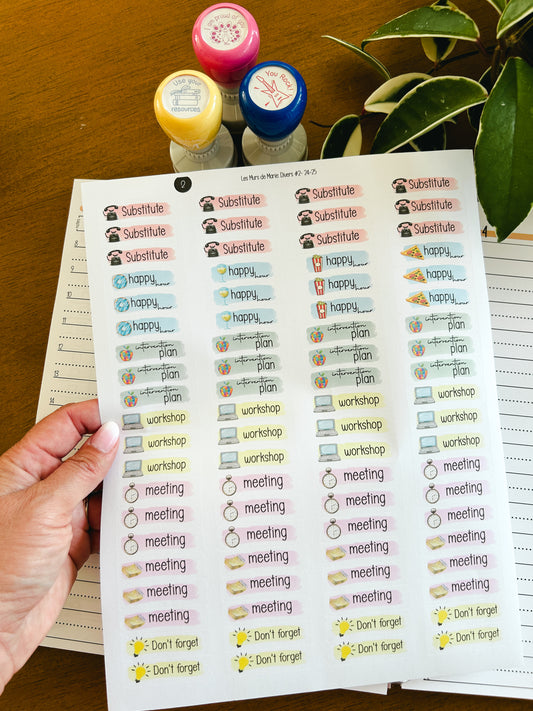 I am proud of you
Use your
resources
You Rock!
Les Murs de Marie, Divers #2- 24-25
Substitute Substitute Substitute Substitute
Substitute Substitute Substitute Substitute
Substitute Substitute Substitute Substitute
happy hour happy hour happy hour happy hour
happy hour happy hour happy hour happy hour
happy hour happy hour happy hour happy hour
intervention plan intervention plan intervention plan intervention plan
intervention plan intervention plan intervention plan intervention plan
intervention plan intervention plan intervention plan intervention plan
workshop workshop workshop workshop
workshop workshop workshop workshop
workshop workshop workshop workshop
meeting meeting meeting meeting
meeting meeting meeting meeting
meeting meeting meeting meeting
meeting meeting meeting meeting
meeting meeting meeting meeting
meeting meeting meeting meeting
Don't forget Don't forget Don't forget Don't forget
Don't forget Don't forget Don't forget Don't forget
9
10
11
12
13
14
4